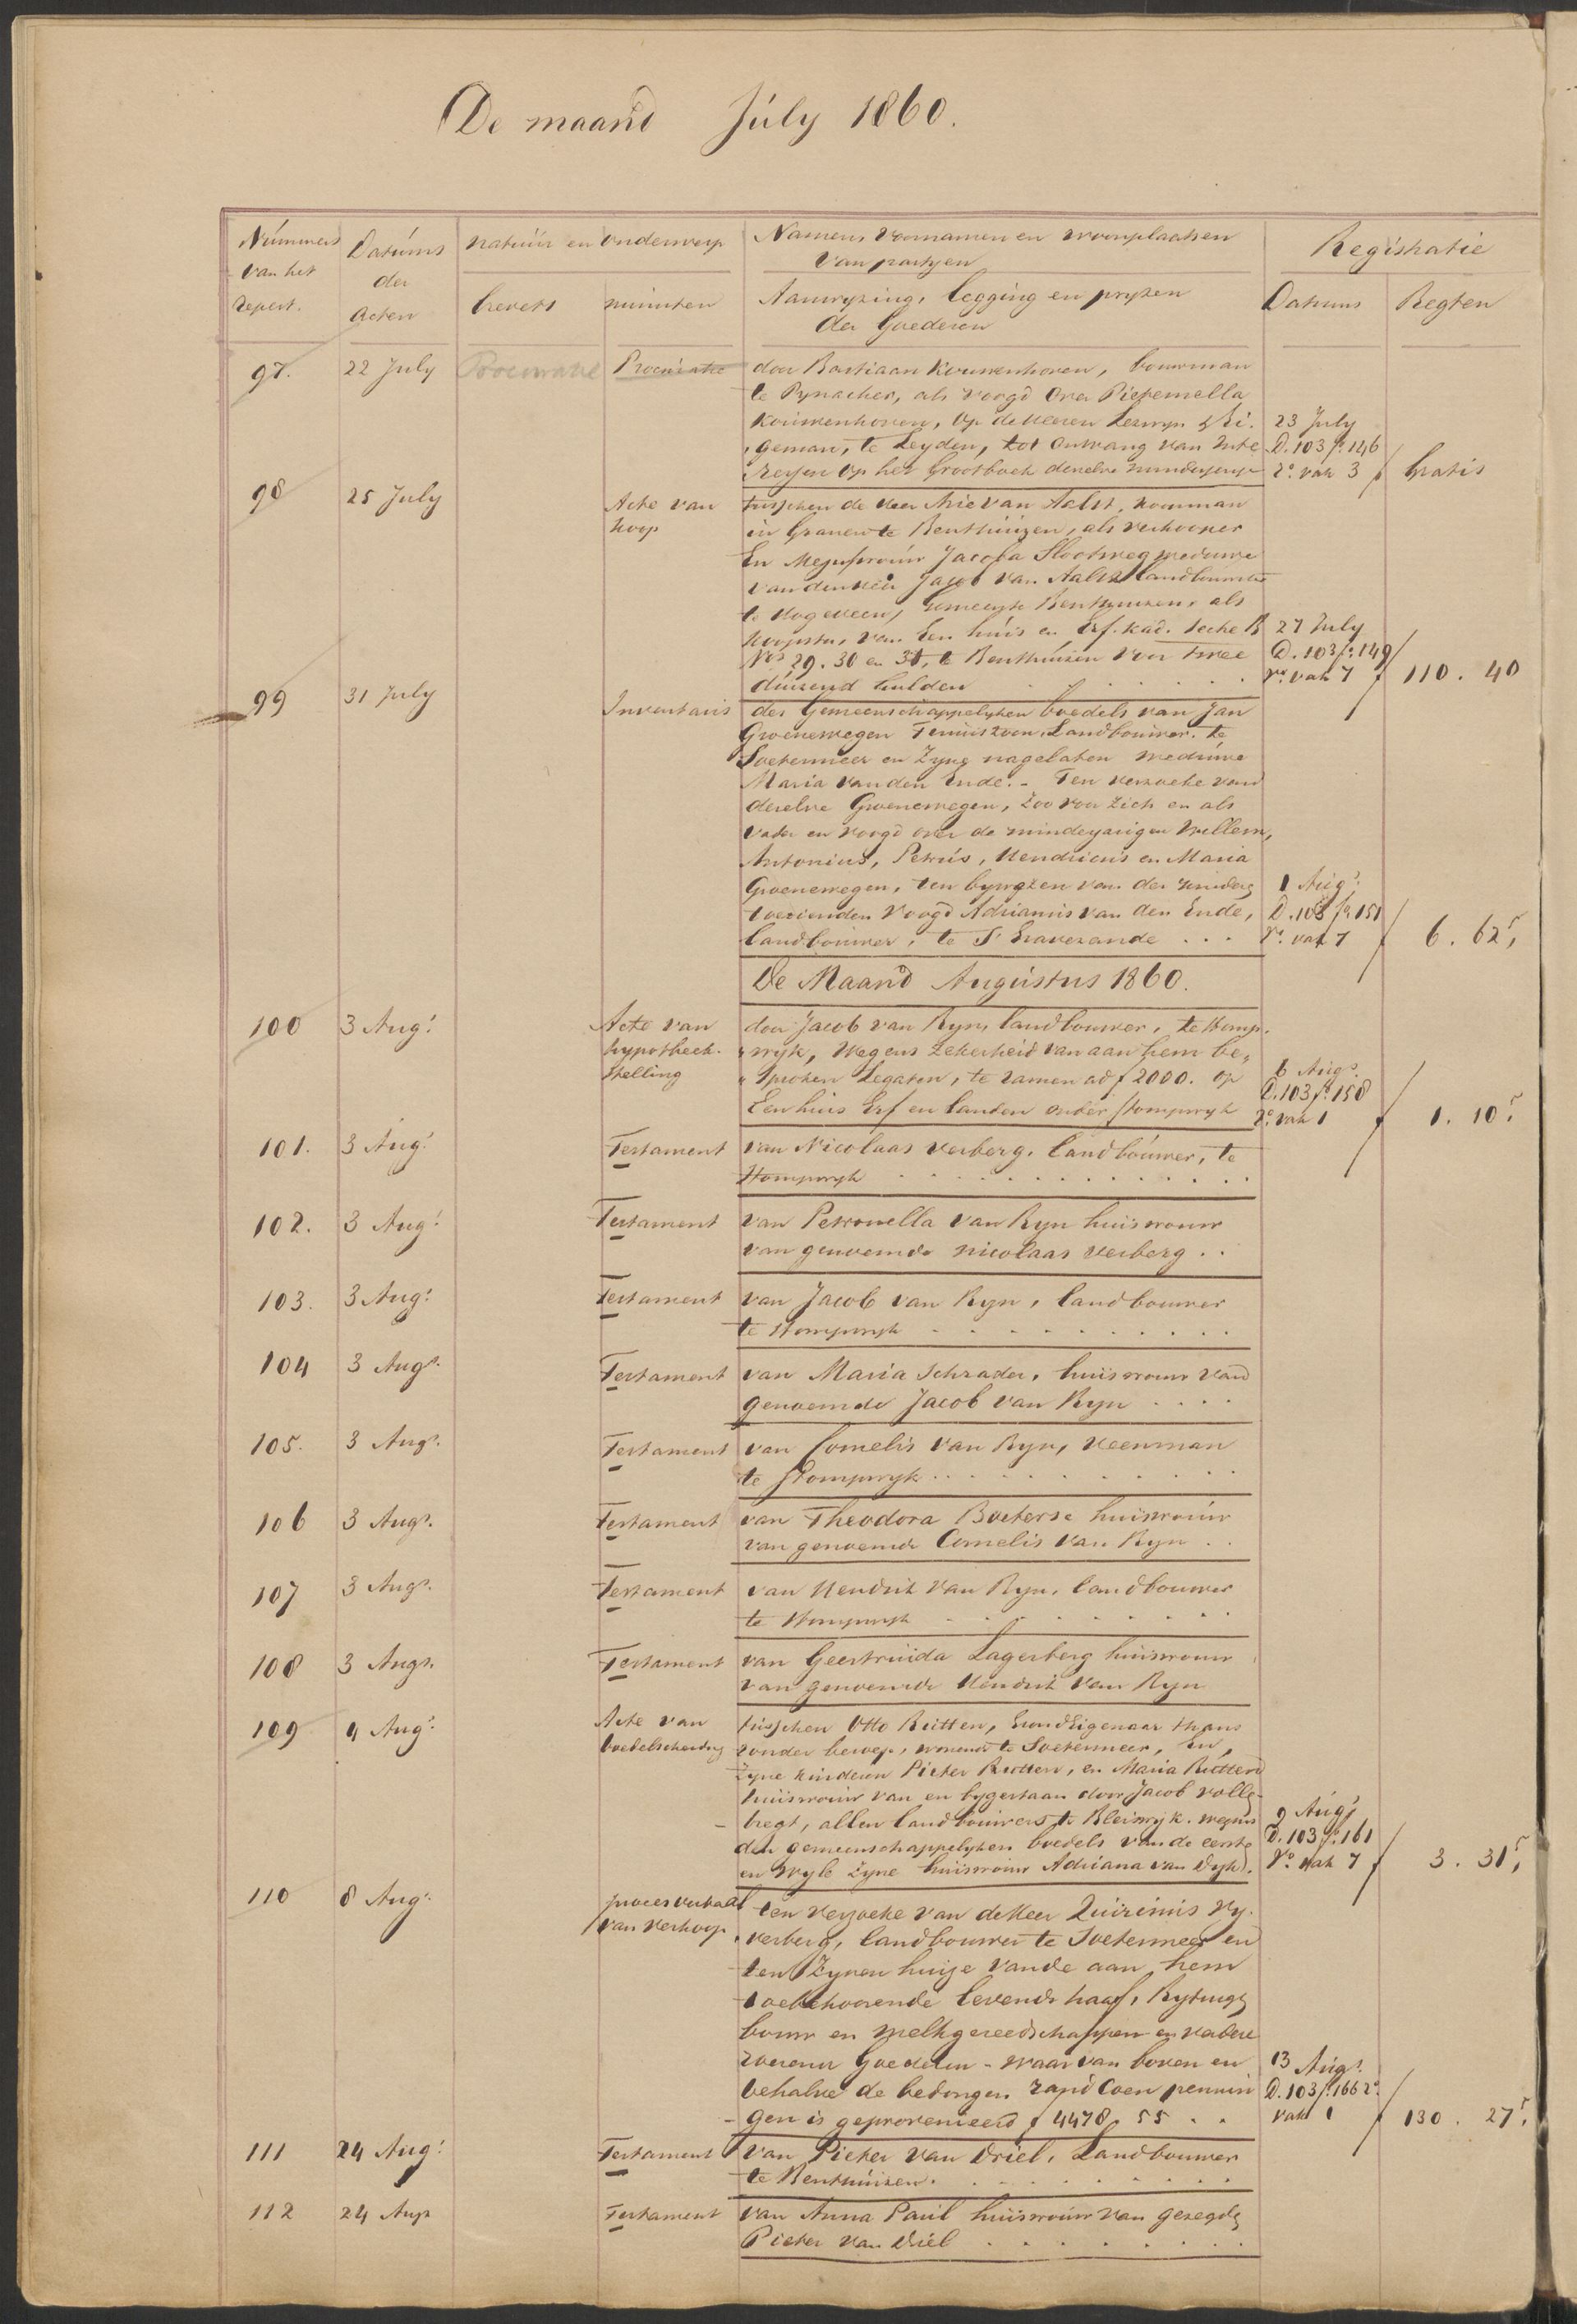 De maand July 1860.
Nummers van het repert.
Datums der Acten
Natuur en onderwerp
brevets
minuten
Namen, Voornamen en woonplaatsen
van partyen
Aanwyzing, legging en pryzen
der Goederen
Registratie
Datums
Regten
97. 22 July Procuratie Procuratie door Bastiaan Kouwenhoven, bouwman
te Pynacker, als voogd over Pieternella
Kouwenhoven, op de Heeren
23 July
geman, te Leyden, tot ontvang van Inte
D. 103 fo. 146
ressen op het Grootboek derzelve minderjarige
ro. vak 3 f Gratis
98 25 July Acte van
koop
tusschen de Heer Arie van Aalst, koornman
in Granen te Benthuizen, als verkooper
En Mejufvrouw Jacoba Slootweg weduwe
van den Heer Jacob van Aalst landbouwster
te Hogeveen, gemeente Benthuizen, als
koopster, van Een huis en Erf. kad. sectie B
27 July
Nos 29. 30 en 31, te Benthuizen voor twee
D. 103 fo. 149
duizend Gulden . . . . . .
ro. vak 7 f 110. 40
99 31 July Inventaris des Gemeenschappelyken boedels van Jan
Groenewegen Teuniszoon, Landbouwer. te
Soetermeer en Zyne nagelaten weduwe
Maria van den Ende. - Ten verzoeke van
derzelve Groenewegen, Zoo voor zich en als
vader en voogd over de minderjarigen Willem,
Antonius, Petrus, Hendricus en Maria
Groenewegen, ten bywezen van den
1 Augs.
toezienden Voogd Adrianus van den Ende,
D. 103 fo. 151
landbouwer, te S' Gravezande . . .
ro. vak 7 f 6. 62 5
De Maand Augustus 1860.
100 3 Augs. Acte van
hypotheek-
stelling
door Jacob van Ryn, landbouwer, te Stomp-
wyk, wegens zekerheid van aan hem be-
sproken Legaten, te zamen ad f 2000. op
6 Augs.
D. 103 fo. 158
Een huis Erf en landen onder Stompwyk
ro. vak 1 f 1. 10 5
101. 3 Augs. Testament van Nicolaas Verberg, landbouwer, te
Stompwyk . . . . . . . . .
102. 3 Augs. Testament van Petronella van Ryn huisvrouw
van genoemde Nicolaas Verberg . .
103. 3 Augs. Testament van Jacob van Ryn, landbouwer
te Stompwyk . . . . . . . .
104 3 Augs. Testament van Maria Schrader, huisvrouw van
genoemde Jacob van Ryn . . . .
105. 3 Augs. Testament van Cornelis van Ryn, Veenman
te Stompwyk . . . . . . . .
106 3 Augs. Testament van Theodora Boeterse huisvrouw
van genoemde Cornelis van Ryn . .
107 3 Augs. Testament van Hendrik van Ryn, landbouwer
te Stompwyk . . . . . . .
108 3 Augs. Testament van Geertruida Lagerberg huisvrouw
van genoemde Hendrik van Ryn
109 4 Augs. Acte van
boedelscheiding
tusschen Otto Rutten, Grond Eigenaar thans
zonder beroep, wonende te Soetermeer, En,
Zyne kinderen Pieter Rutten, en Maria Rutten
huisvrouw van en bygestaan door Jacob Volle-
bregt, allen landbouwers te Bleiswyk. wegens
9 Augs.
den gemeenschappelyken boedels van de eerste
D. 103 fo. 161
en wyle zyne huisvrouw Adriana van Dyk.
ro. vak 7 f 3. 31 5
110 8 Augs. proces verbaal
van verkoop
ten verzoeke van de Heer Quirinus Vy-
verberg, landbouwer te Soetermeer en
ten Zynen huize van de aan hem
toebehoorende levende haaf, Rytuig
bouw en melkgereedschappen en verdere
roerende Goederen - waar van boven en
13 Augs.
behalve de bedongen rand Coen pennin
D. 103 fo. 166 ro.
gen is geprovenieerd f 4478, 55 . .
vak 1 f 130. 27 5
111 24 Augs. Testament van Pieter van Driel, Landbouwer
te Benthuizen. . . . . . . .
112 24 Augs Testament van Anna Paul huisvrouw van gezegde
Pieter van Driel . . . . . . .